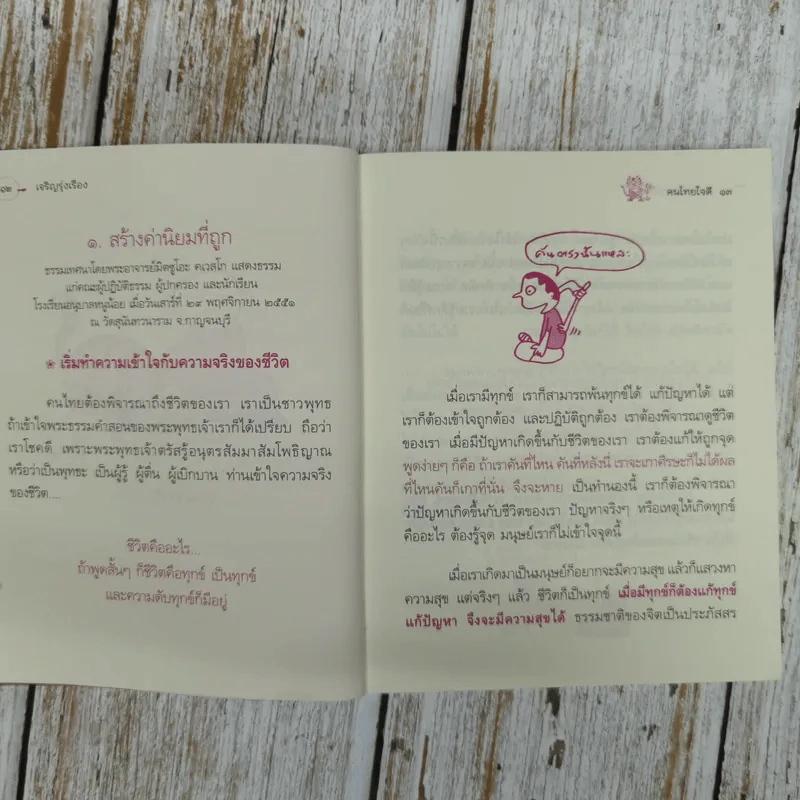 ๑๒
เจริญรุ่งเรือง
๑. สร้างค่านิยมที่ถูก
ธรรมเทศนาโดยพระอาจารย์มิตซูโอะ คเวสโก แสดงธรรม
แก่คณะผู้ปฏิบัติธรรม ผู้ปกครอง และนักเรียน
โรงเรียนอนุบาลหนูน้อย เมื่อวันเสาร์ที่ ๒๙ พฤศจิกายน ๒๕๕๑
ณ วัดสุนันทวนาราม จ.กาญจนบุรี
เริ่มทำความเข้าใจกับความจริงของชีวิต
คนไทยต้องพิจารณาถึงชีวิตของเรา เราเป็นชาวพุทธ
ถ้าเข้าใจพระธรรมคำสอนของพระพุทธเจ้าเราก็ได้เปรียบ ถือว่า
เราโชคดี เพราะพระพุทธเจ้าตรัสรู้อนุตรสัมมาสัมโพธิญาณ
หรือว่าเป็นพุทธะ เป็นผู้รู้ ผู้ตื่น ผู้เบิกบาน ท่านเข้าใจความจริง
ของชีวิต....
ชีวิตคืออะไร...
ถ้าพูดสั้นๆ ก็ชีวิตคือทุกข์ เป็นทุกข์
และความดับทุกข์ก็มีอยู่
คนไทยใจดี ๑๓
คันตรงนั้นแหละ
เมื่อเรามีทุกข์ เราก็สามารถพ้นทุกข์ได้ แก้ปัญหาได้ แต่
เราก็ต้องเข้าใจถูกต้อง และปฏิบัติถูกต้อง เราต้องพิจารณาดูชีวิต
ของเรา เมื่อมีปัญหาเกิดขึ้นกับชีวิตของเรา เราต้องแก้ให้ถูกจุด
พูดง่ายๆ ก็คือ ถ้าเราคันที่ไหน คันที่หลังนี่ เราจะเกาศีรษะก็ไม่ได้ผล
ที่ไหนคันก็เกาที่นั่น จึงจะหาย เป็นทำนองนี้ เราก็ต้องพิจารณา
ว่าปัญหาเกิดขึ้นกับชีวิตของเรา ปัญหาจริงๆ หรือเหตุให้เกิดทุกข์
คืออะไร ต้องรู้จุด มนุษย์เราก็ไม่เข้าใจจุดนี้
เมื่อเราเกิดมาเป็นมนุษย์ก็อยากจะมีความสุข แล้วก็แสวงหา
ความสุข แต่จริงๆ แล้ว ชีวิตก็เป็นทุกข์ เมื่อมีทุกข์ก็ต้องแก้ทุกข์
แก้ปัญหา จึงจะมีความสุขได้ ธรรมชาติของจิตเป็นประภัสสร